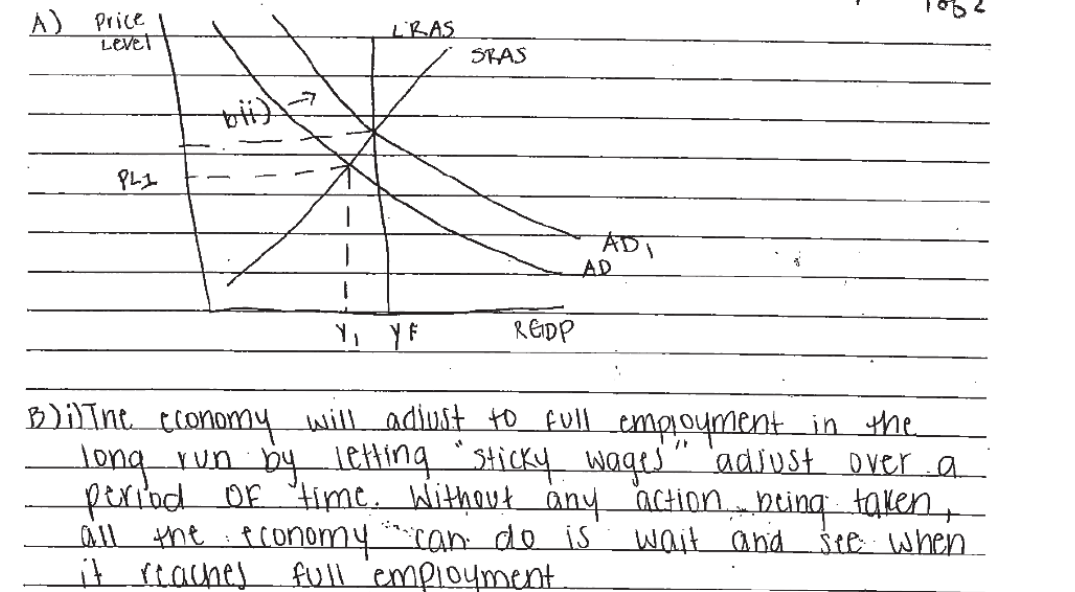 A) Price
Level
LRAS
SRAS
bii)
PL1
AD1
AD
Y1 YF RGDP
B)i) The economy will adjust to full employment in the
long run by letting "sticky wages" adjust over a
period of time. Without any action being taken,
all the economy can do is wait and see when
it reaches full employment